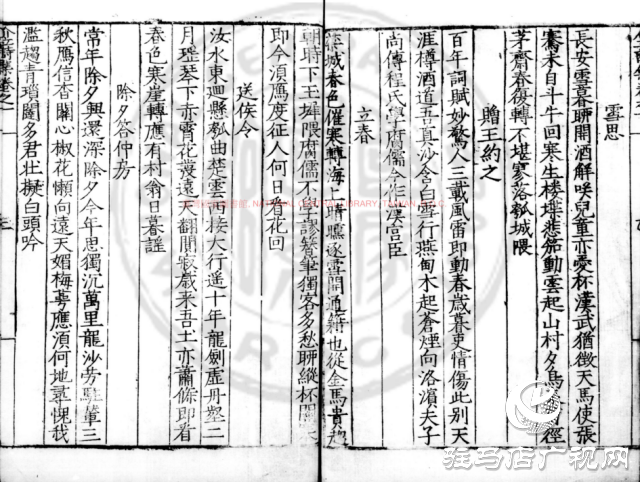 雪思
長安雪暮聊開酒解咲兒童亦愛杯漢武猶徵天馬使張
騫未自斗牛回寒生楼堞悲笳動雲起山村夕鳥
徑
茅齋春復轉不堪寥落孤城隈
贈王約之
百年詞賦妙驚人三載風雷即動春歲暮更情傷此別天
涯樽酒道吾真沙含白雪行燕甸木起蒼煙向洛濱夫子
尚傳程氏學腐儒今作漢宮臣
立春
城春色催寒轉海上晴曛逐雪開通籍也從金馬貴趋
朝時下玉墀隈腐儒不學謬簪筆獨客多愁聊縱杯
即今須為度征人何日看花回
送侯令
汝水東廻縣孤曲楚雲西接大行遥十年龍劍虛丹壑二
月瑶琴下赤霄花發遠天翻開寂歲来吾土亦蕭條即看
春色寒崖轉應有村翁日暮謡
除夕答仲房
常年除夕興還深除夕今年思獨沉萬里龍沙勞駐輦三
秋鴈信杳關心椒花懶向遠天媚梅萼應須何地尋愧我
濫趨青瑣闥多君壯擬白頭吟
卷之一
三
NATIONAL CENTRAL LIBRARY, TAIWAN
驻马店广视网